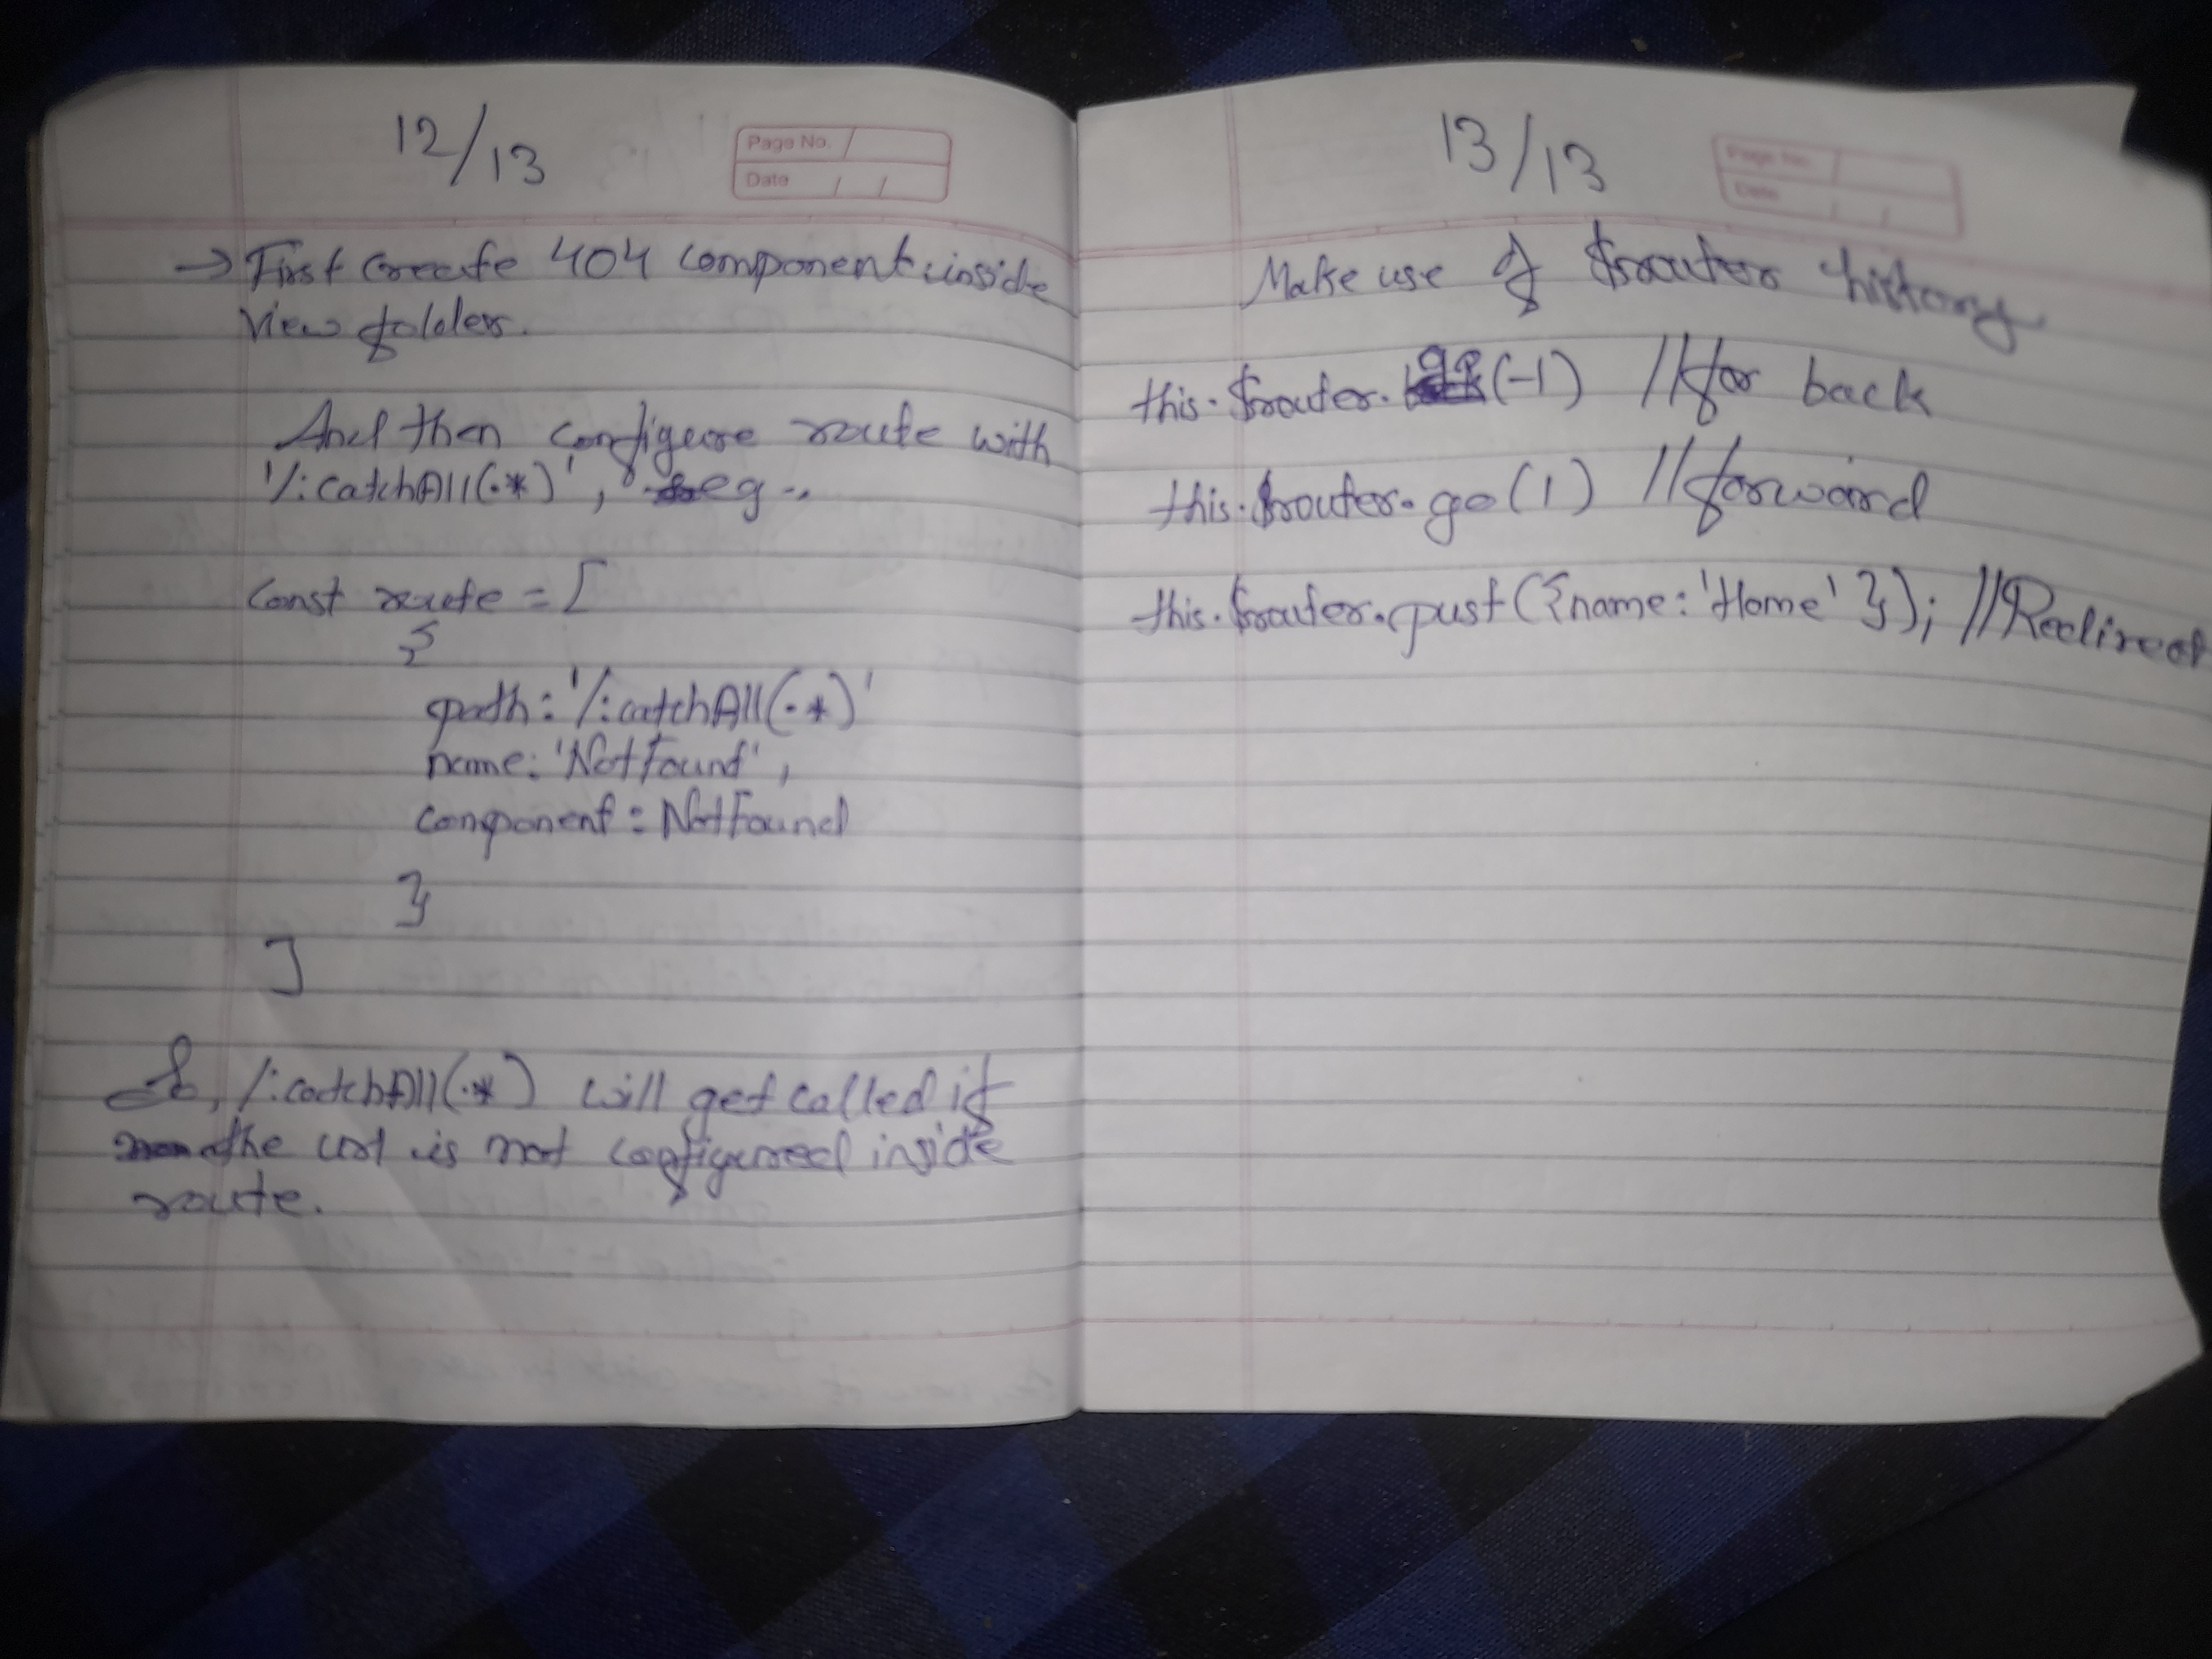 12/13
Page No.
Date / /
→ First Create 404 component inside
View folder.
And then configure route with
'/:catchAll(.*)', eg -,
Const route = [
{
path: '/:catchAll(.*)'
name: 'NotFound',
component: NotFound
}
]
So, /:catchAll(.*) will get called if
the url is not configured inside
route.
13/13
Page No.
Date / /
Make use of $router history
this.$router.go(-1) // for back
this.$router.go(1) // forward
this.$router.push({name: 'Home' }); // Redirect